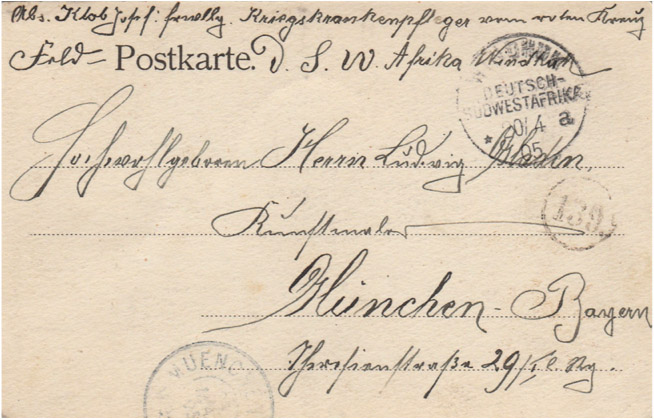 Abs. Klob Josef: frwllg. Kriegskrankenpfleger vom roten Kreuz
Feld- Postkarte. D. S. W. Afrika Windhuk
DEUTSCH-
SÜDWESTAFRIKA
20/4 a
05
Hochwohlgeboren Herrn Ludwig
Kunstmaler
139
München - Bayern
Theresienstraße 29/
MUENCHEN